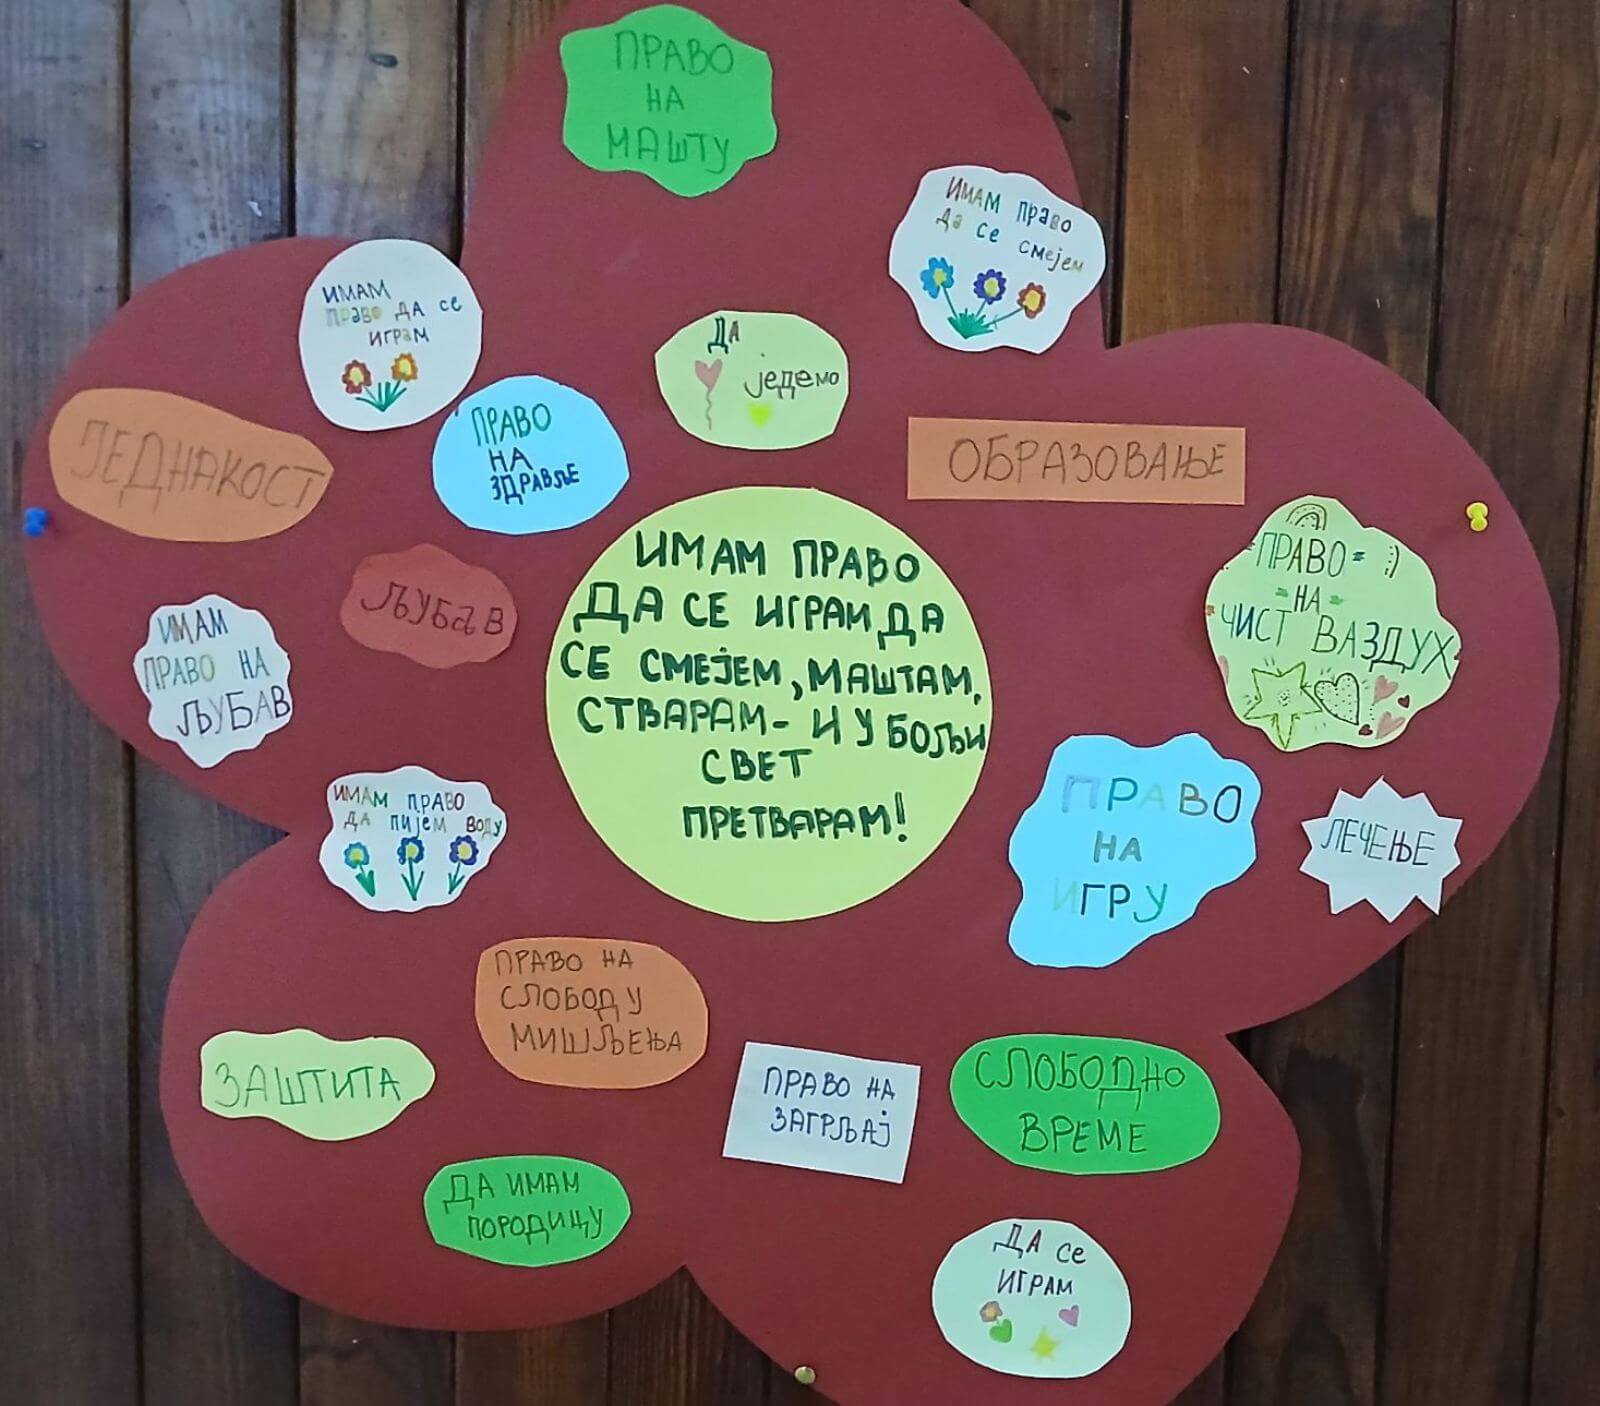 ПРАВО
НА
МАШТУ
ИМАМ право
да се смејем
ИМАМ
право ДА се
играм
ДА
једемо
ЈЕДНАКОСТ
ПРАВО
НА
ЗДРАВЉЕ
ОБРАЗОВАЊЕ
ПРАВО
НА
ЧИСТ ВАЗДУХ
ЉУБАВ
ИМАМ ПРАВО
ДА СЕ ИГРАМ ДА
СЕ СМЕЈЕМ, МАШТАМ,
СТВАРАМ - И У БОЉИ
СВЕТ
ПРЕТВАРАМ!
ИМАМ
ПРАВО НА
ЉУБАВ
ИМАМ ПРАВО
ДА пијем воду
ПРАВО
НА
ИГРУ
ЛЕЧЕЊЕ
ПРАВО НА
СЛОБОДУ
МИШЉЕЊА
ЗАШТИТА
ПРАВО НА
ЗАГРЉАЈ
СЛОБОДНО
ВРЕМЕ
ДА ИМАМ
ПОРОДИЦУ
ДА се
ИГРАМ